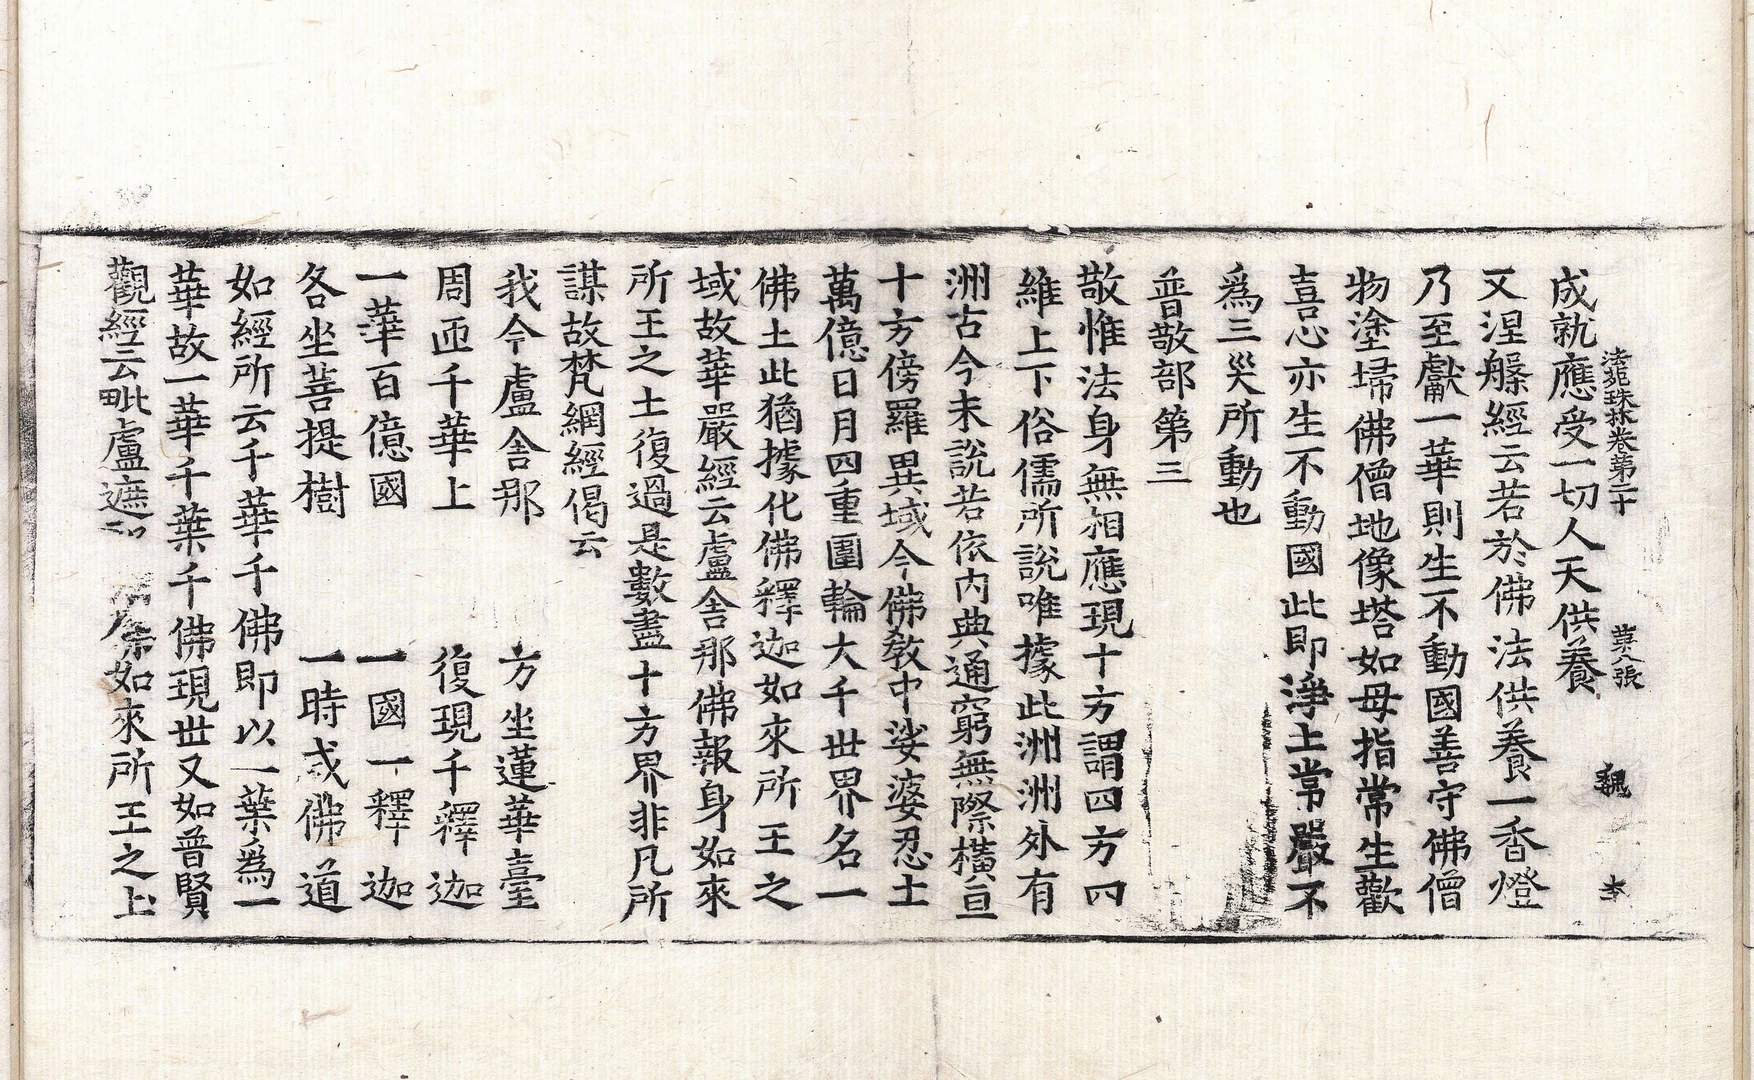 法苑珠林卷第二十 第八張 魏
成就應受一切人天供養
又涅槃經云若於佛法供養一香燈
乃至獻一華則生不動國善守佛僧
物塗埽佛僧地像塔如母指常生歡
喜心亦生不動國此即淨土常嚴不
爲三災所動也
普敬部第三
敬惟法身無相應現十方謂四方四
維上下俗儒所說唯據此洲洲外有
洲古今未說若依內典通窮無際橫亘
十方傍羅異域今佛教中娑婆忍土
萬億日月四重圍輪大千世界名一
佛土此猶據化佛釋迦如來所王之
域故華嚴經云盧舍那佛報身如來
所王之土復過是數盡十方界非凡所
謀故梵網經偈云
我今盧舍那 方坐蓮華臺
周匝千華上 復現千釋迦
一華百億國 一國一釋迦
各坐菩提樹 一時成佛道
如經所云千華千佛即以一葉爲一
華故一華千葉千佛現世又如普賢
觀經云毗盧遮 如來所王之土